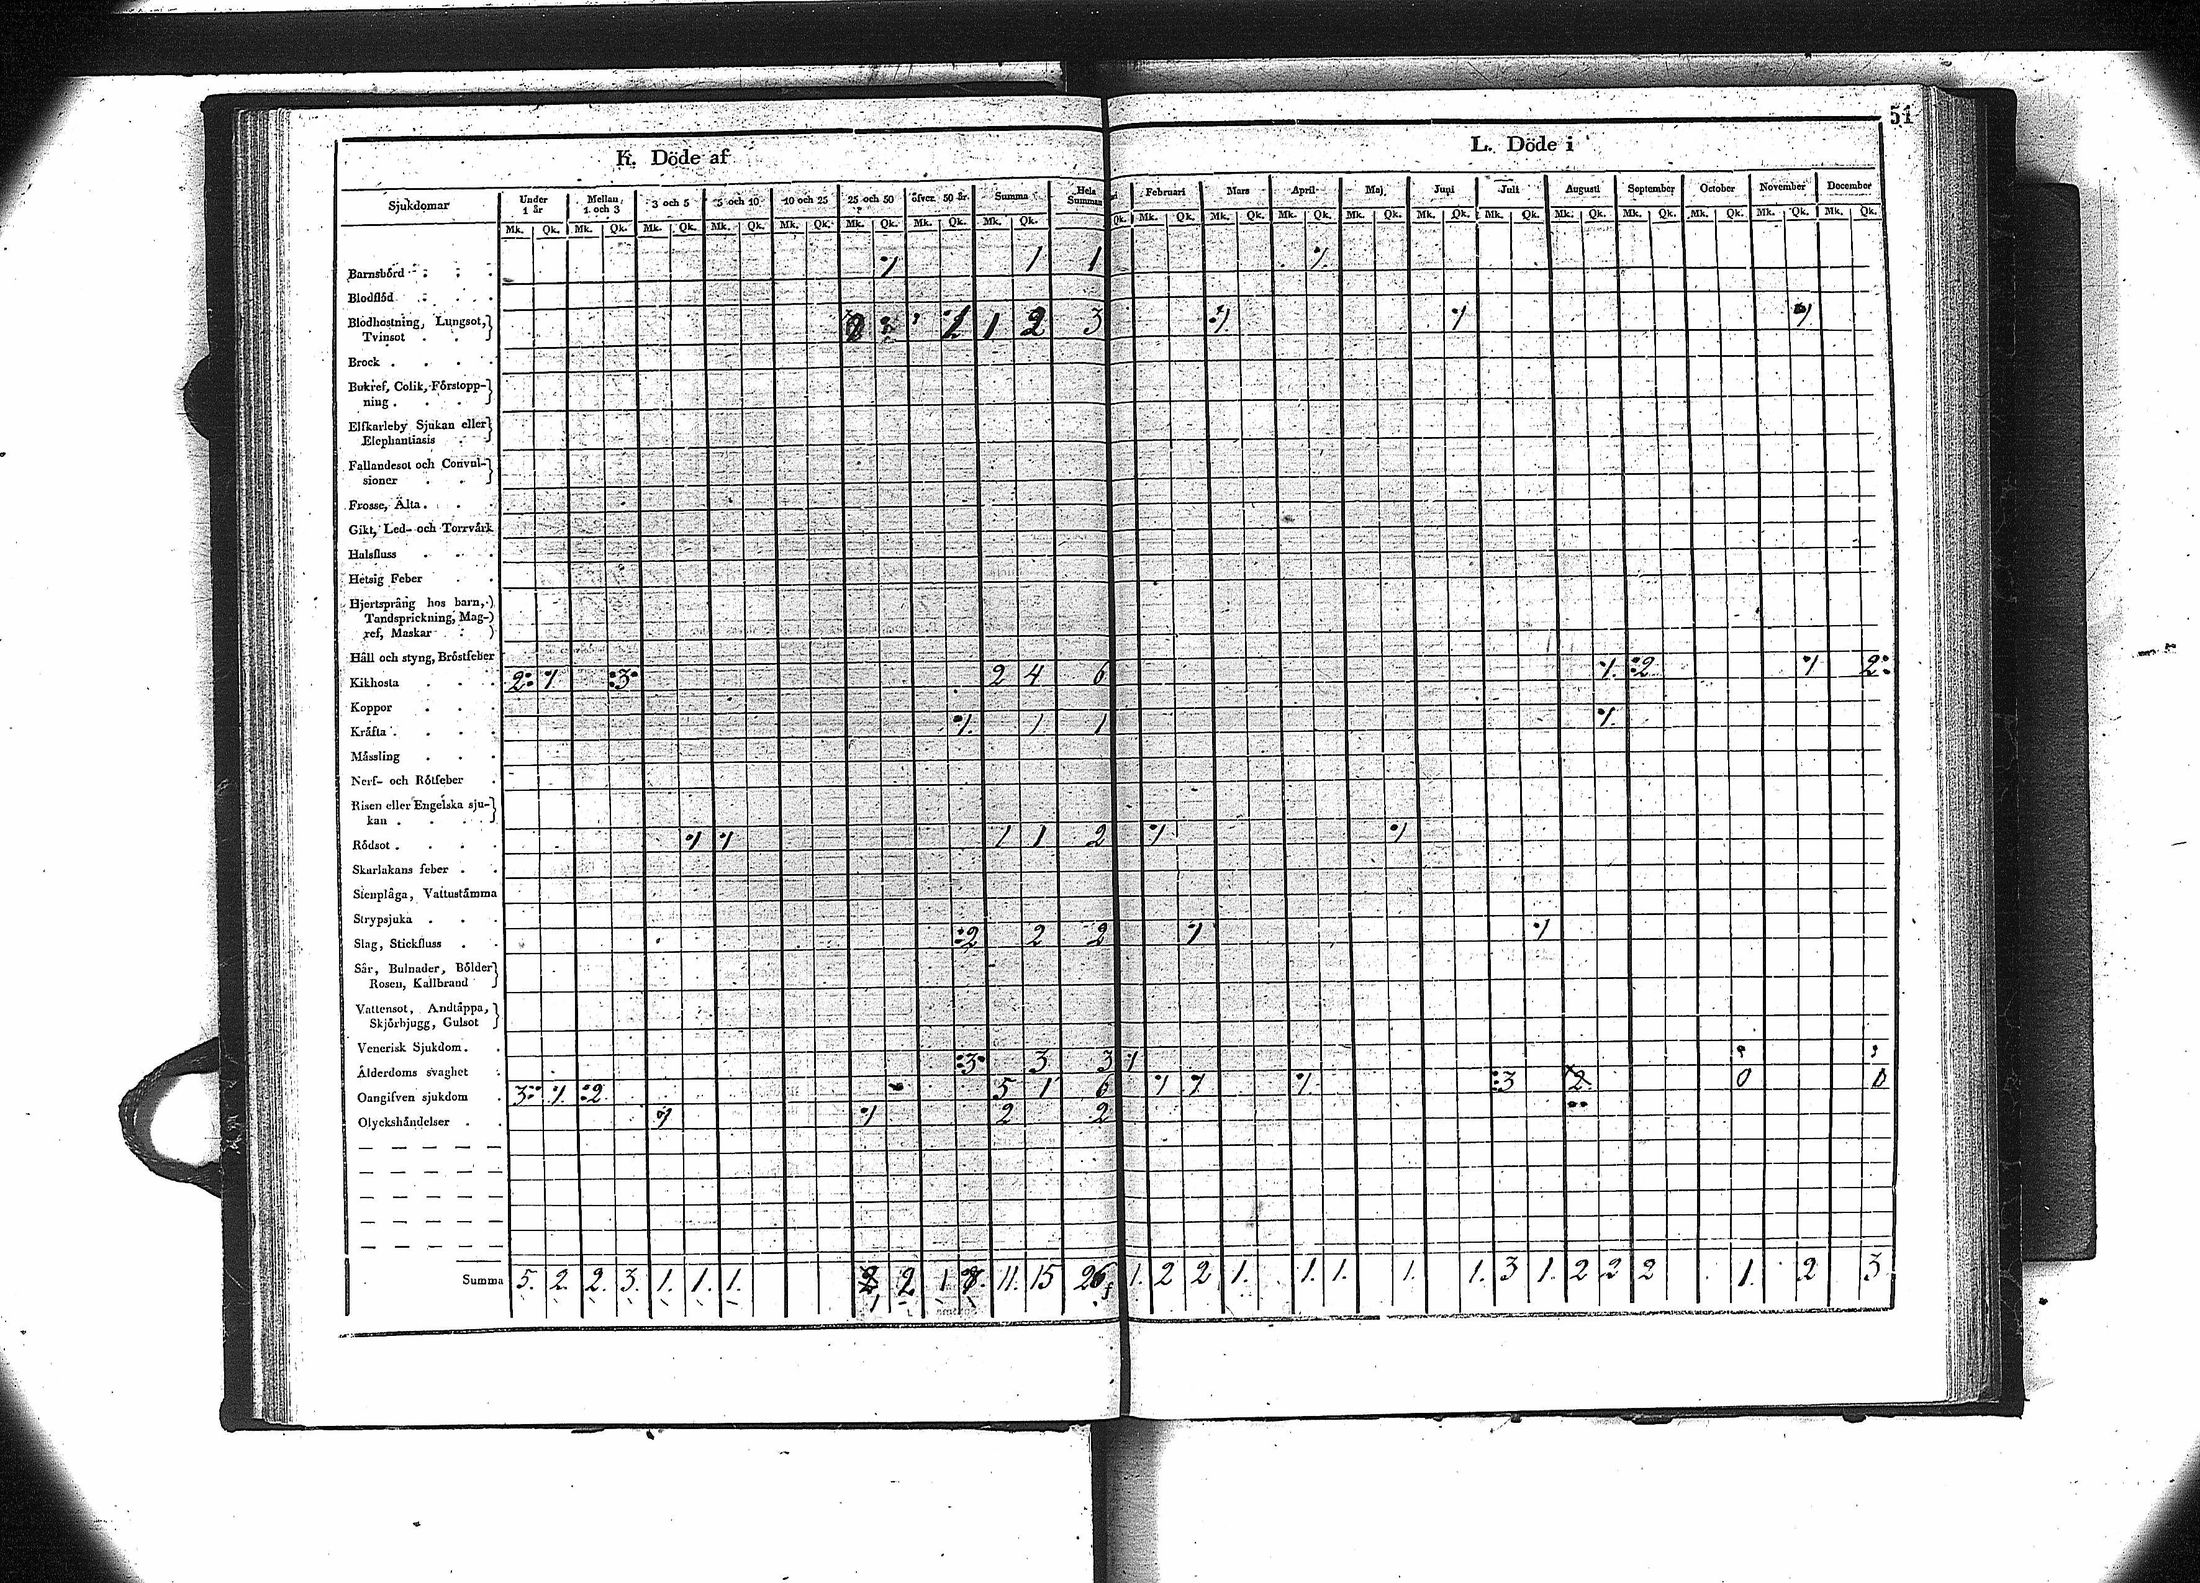 51
K. Döde af
L. Döde i
Sjukdomar Under 1 år Mellan 1 och 3 3 och 5 5 och 10 10 och 25 25 och 50 öfver 50 år. Summa Hela Summan Februari Mars April Maj Juni Juli Augusti September October November December
Mk. Qk. Mk. Qk. Mk. Qk. Mk. Qk. Mk. Qk. Mk. Qk. Mk. Qk. Mk. Qk. Qk. Mk. Qk. Mk. Qk. Mk. Qk. Mk. Qk. Mk. Qk. Mk. Qk. Mk. Qk. Mk. Qk. Mk. Qk. Mk. Qk. Mk. Qk.
Barnsbörd 1 1 1 1
Blodflöd
Blodhostning, Lungsot,
Tvinsot 1 2 3 1 1 1
Brock
Bukref, Colik, Förstopp-
ning
Elfkarleby Sjukan eller
Elephantiasis
Fallandesot och Convul-
sioner
Frosse, Älta
Gikt, Led- och Torrvärk
Halsfluss
Hetsig Feber
Hjertsprång hos barn,
Tandsprickning, Mag-
ref, Maskar
Håll och styng, Bröstfeber
Kikhosta 2 1 3 2 4 6 1 2 1 2
Koppor
Kräfta 1 1 1 1
Mässling
Nerf- och Rötfeber
Risen eller Engelska sju-
kan
Rödsot 1 1 1 1 2 1 1
Skarlakans feber
Stenplåga, Vattustämma
Strypsjuka
Slag, Stickfluss 2 2 2 1 1
Sår, Bulnader, Bölder
Rosen, Kallbrand
Vattensot, Andtäppa,
Skjörbjugg, Gulsot
Venerisk Sjukdom
Ålderdoms svaghet 3 3 3 1
Oangifven sjukdom 3 1 2 5 1 6 1 1 1 3 2 0 0
Olyckshändelser 1 1 2 2
Summa 5. 2. 2. 3. 1. 1. 1. 2 1 8. 11. 15 26 1. 2 2 1. 1. 1. 1. 1. 3 1. 2 2 2 1. 2 3